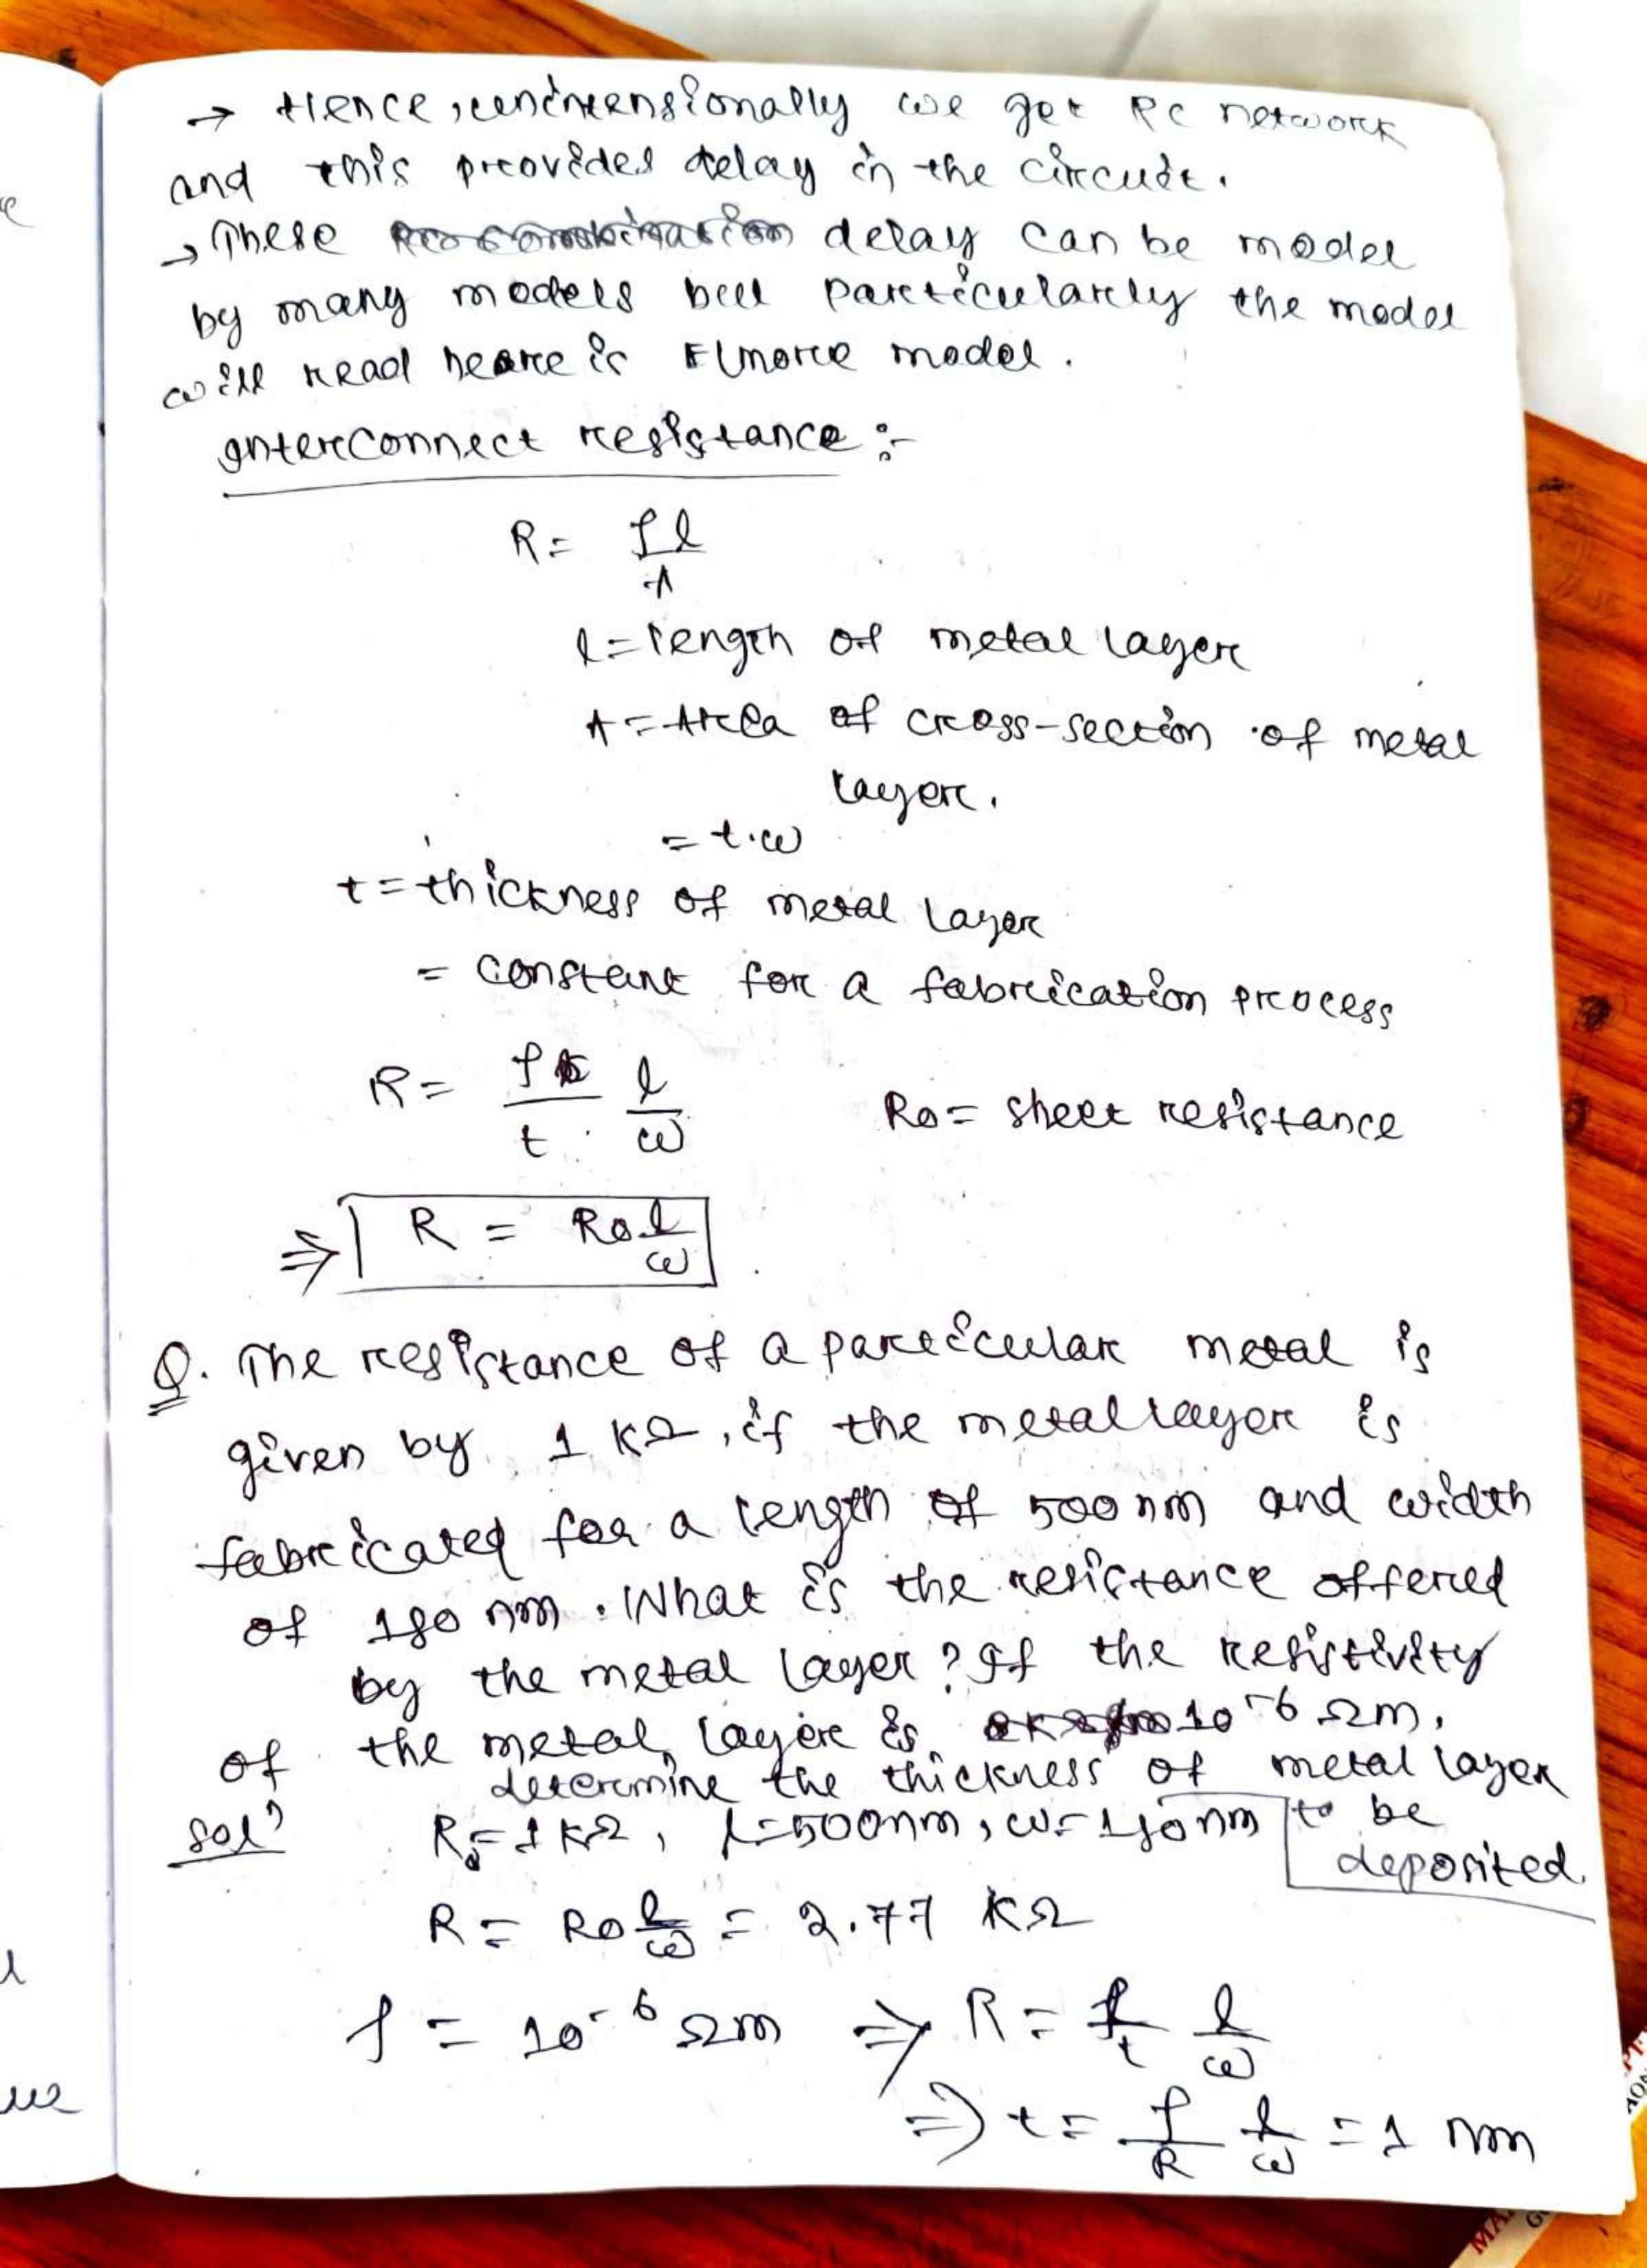 → Hence, unintensionally we get RC network
and this provides delay in the circuit.
→ These delay can be model
by many models but particularly the model
will read here is Elmore model.
Interconnect resistance :-
R = ρl/A
l = length of metal layer
A = Area of cross-section of metal
layer.
= t.w
t = thickness of metal layer
= constant for a fabrication process
R = ρ/t . l/w    R□ = sheet resistance
⇒ R = R□ l/w
Q. The resistance of a particular metal is
given by 1 kΩ, if the metal layer is
fabricated for a length of 500 nm and width
of 180 nm. What is the resistance offered
by the metal layer? If the resistivity
of the metal layer is 10^-6 Ωm,
determine the thickness of metal layer
to be
deposited.
Solⁿ R□ = 1 kΩ, l = 500nm, w = 180 nm
R = R□ l/w = 2.77 kΩ
ρ = 10^-6 Ωm ⇒ R = ρ/t l/w
⇒ t = ρ/R l/w = 1 nm